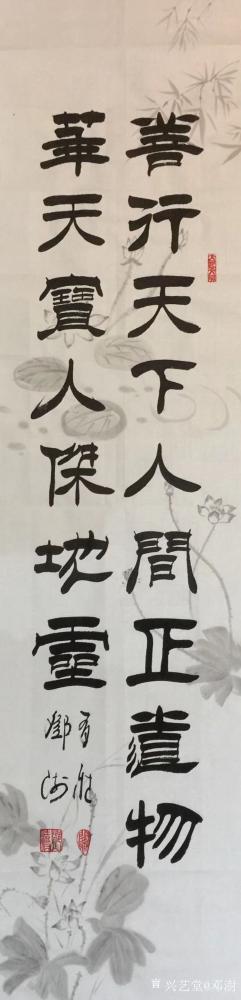 善行天下人間正道物
華天寶人傑地靈
鄧澍
兴艺堂@邓澍